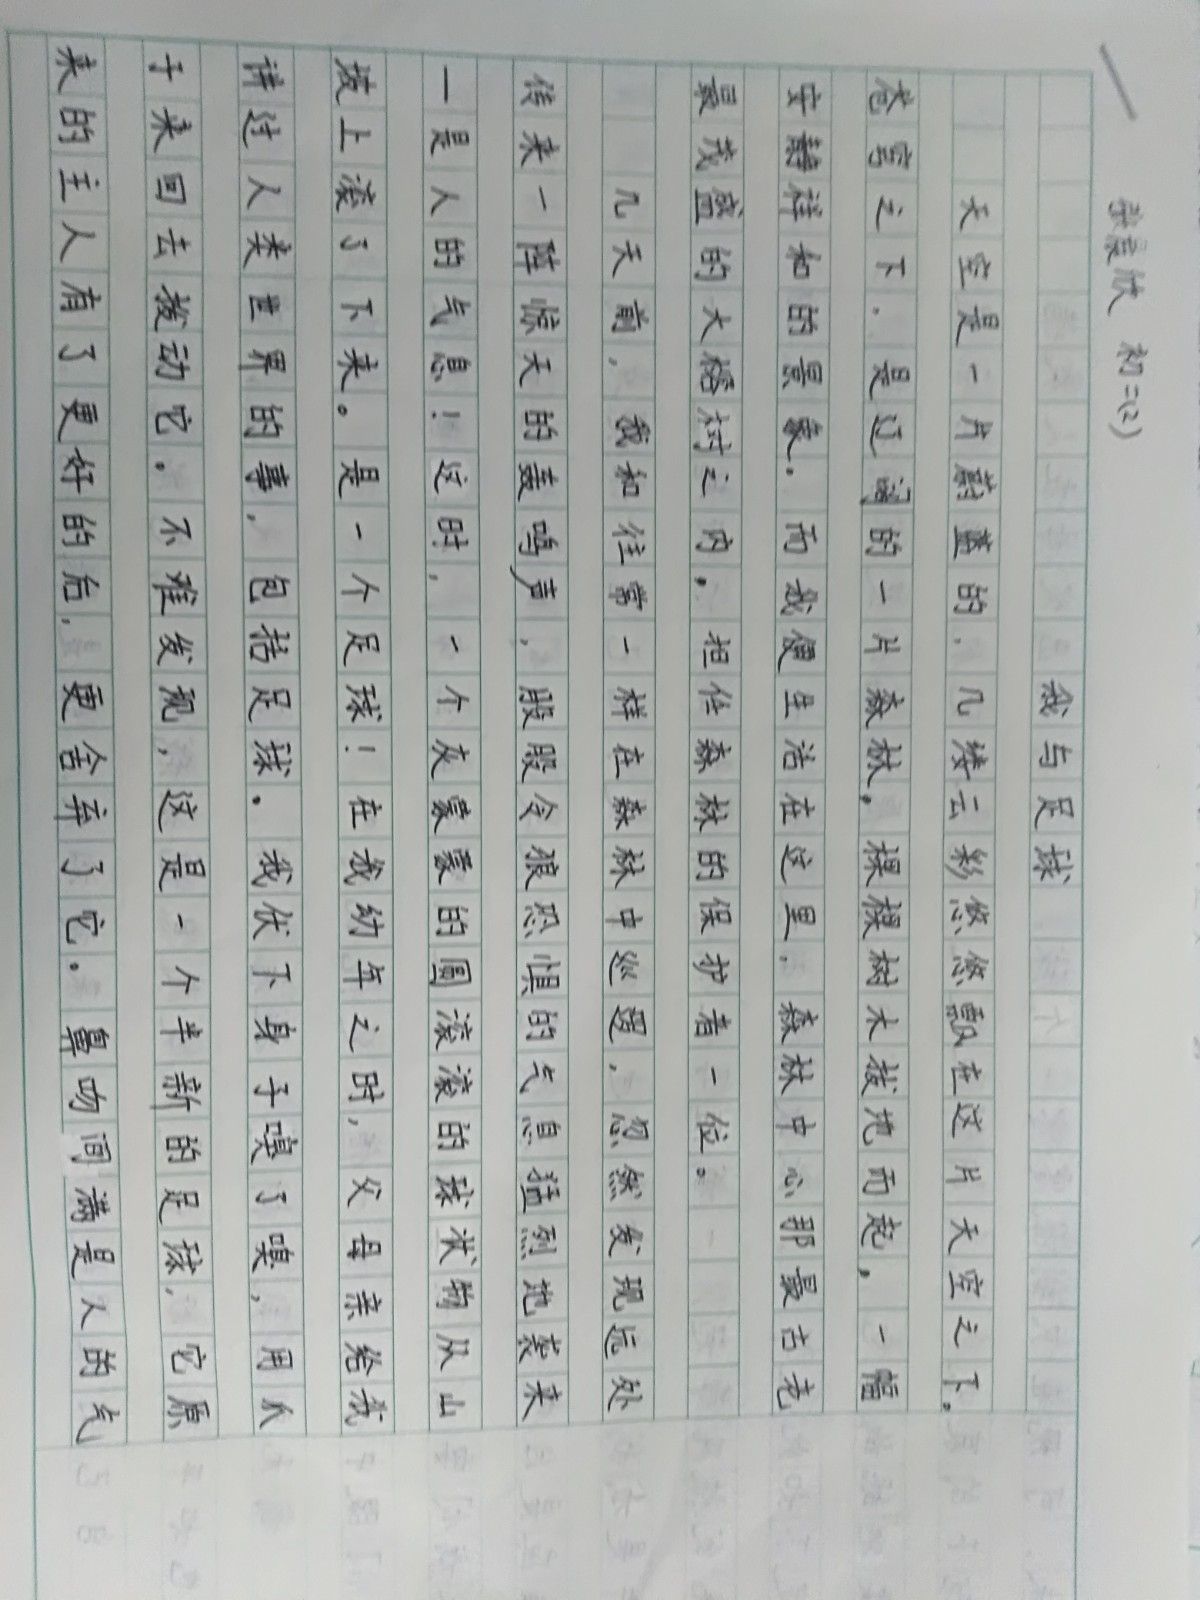 晨欣 初二(2)
我与足球
天空是一片蔚蓝的，几缕云彩悠悠飘在这片天空之下。
苍穹之下，是辽阔的一片森林，棵棵树木拔地而起，一幅
安静祥和的景象。而我便生活在这里，森林中心那最古老
最茂盛的大榕树之内，担任森林的保护者一位。
几天前，我和往常一样在森林中巡逻，忽然发现远处
传来一阵惊天的轰鸣声，股股令狼恐惧的气息猛烈地袭来
一是人的气息！这时，一个灰蒙蒙的圆滚滚的球状物从山
坡上滚了下来。是一个足球！在我幼年之时，父母亲给我
讲过人类世界的事，包括足球。我伏下身子嗅了嗅，用爪
于来回去拨动它。不难发现，这是一个半新的足球，它原
来的主人有了更好的后，更舍弃了它。鼻吻间满是人的气